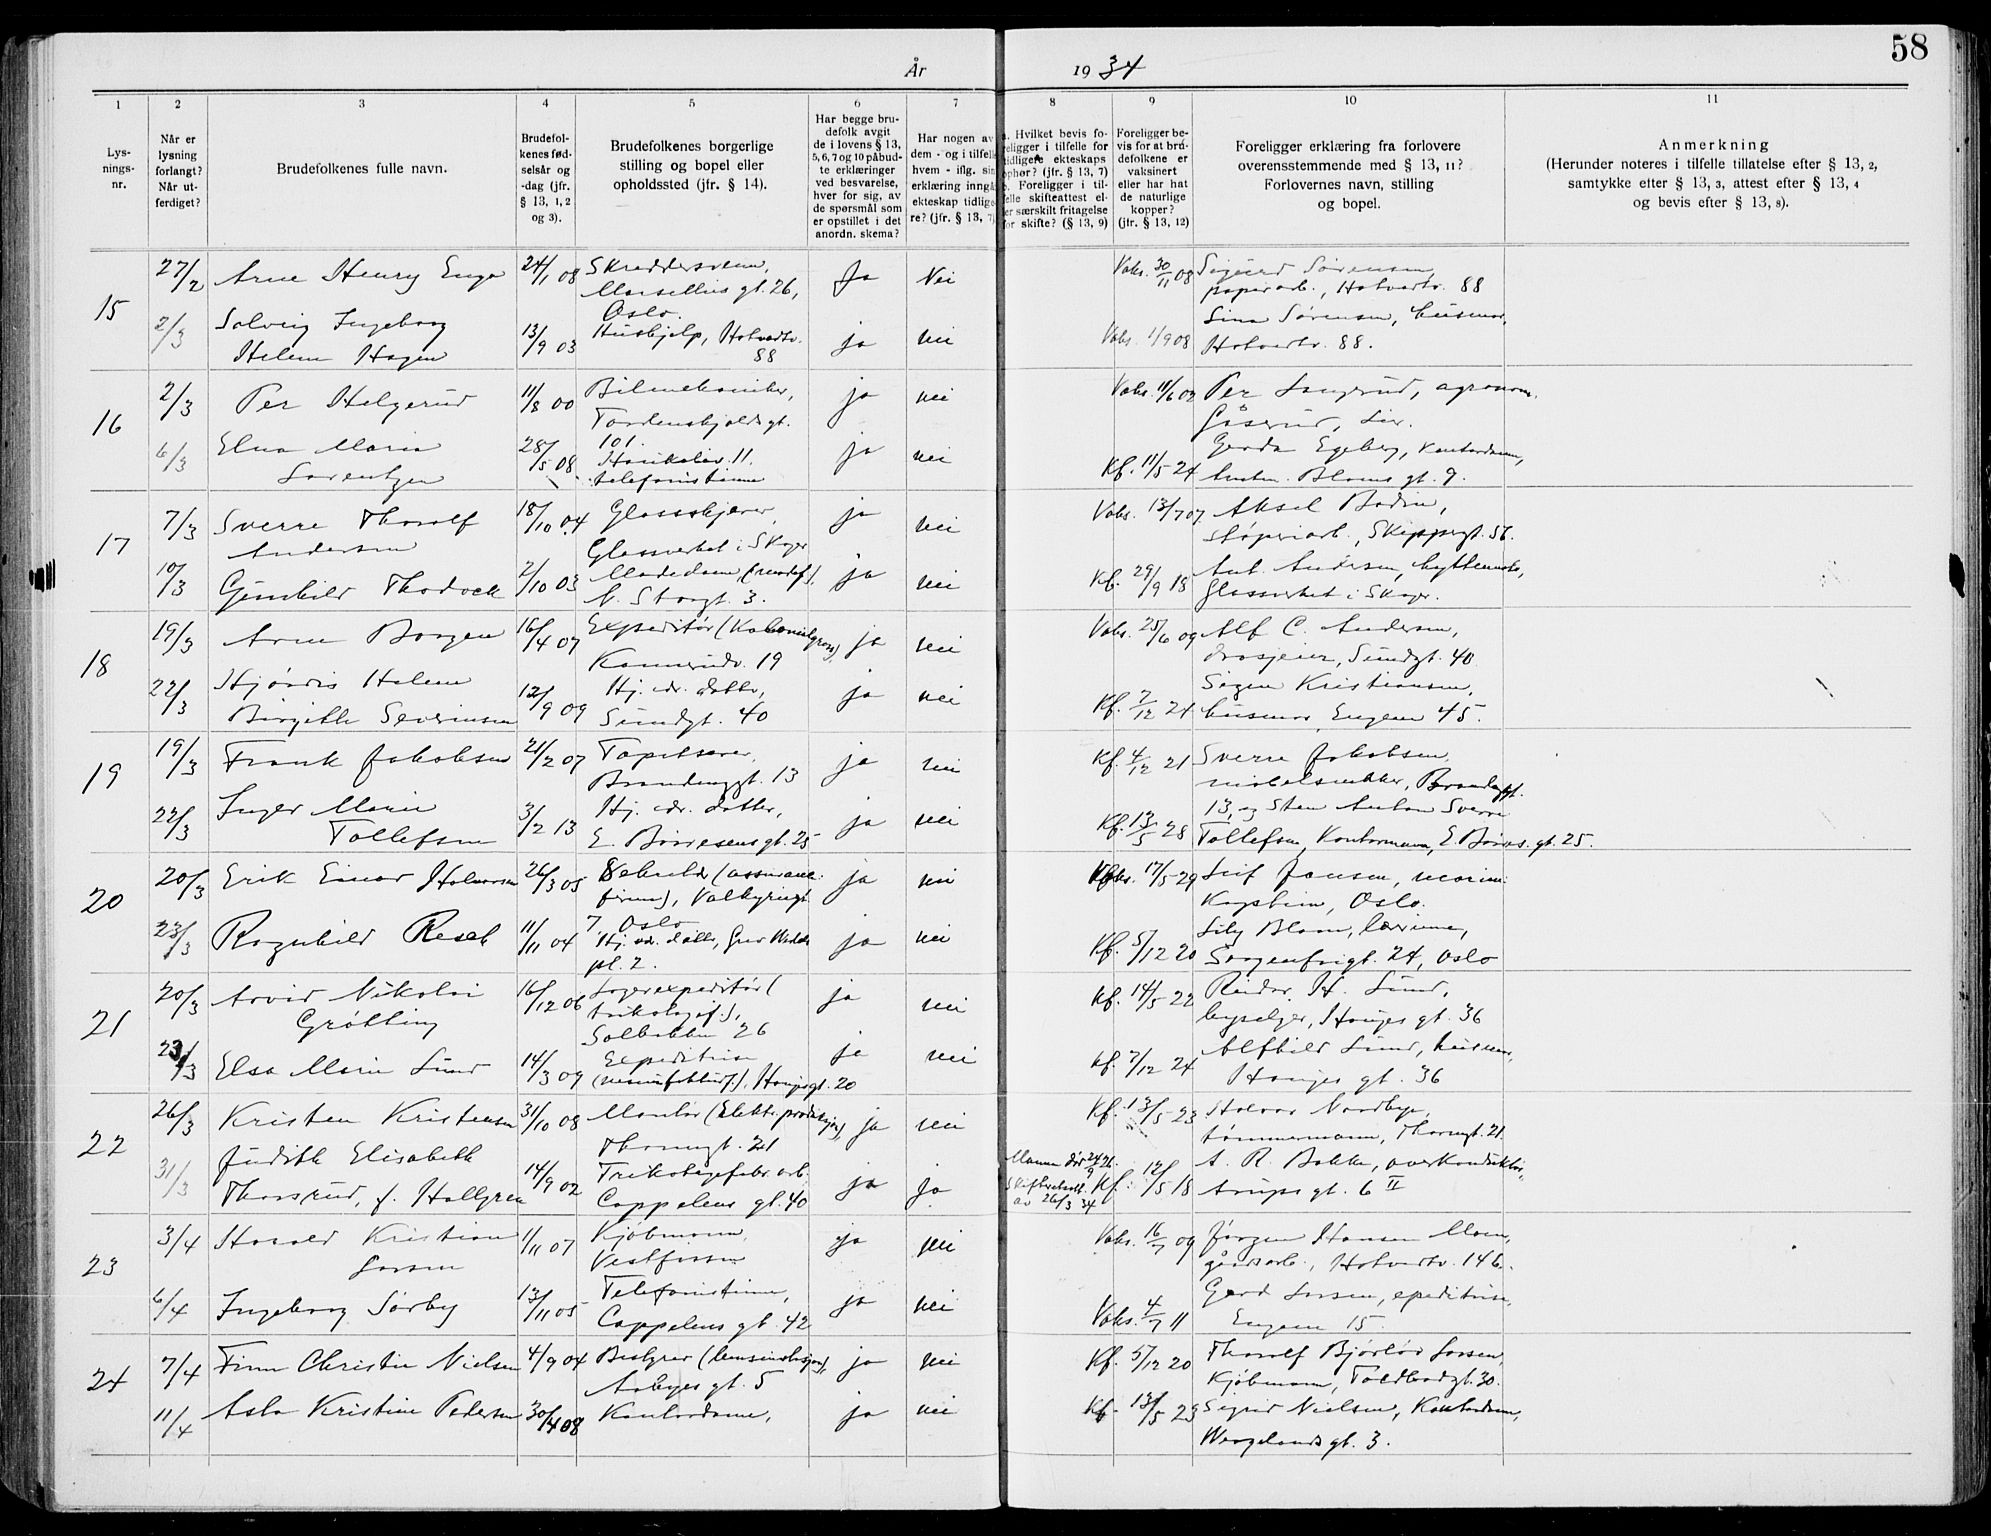 58
År 1934
1 2 3 4 5 6 7 8 9 10 11
Lys-
nings-
nr.
Når er
lysning
forlangt?
Når ut-
ferdiget?
Brudefolkenes fulle navn.
Brudefol-
kenes fød-
selsår og
-dag (jfr.
§ 13, 1, 2
og 3).
Brudefolkenes borgerlige
stilling og bopel eller
opholdssted (jfr. § 14).
Har begge bru-
defolk avgit
de i lovens § 13,
5, 6, 7 og 10 påbud-
te erklæringer
ved besvarelse,
hver for sig, av
de spørsmål som
er opstillet i det
anordn. skema?
Har nogen av
dem - og i tilfelle
hvem - iflg. sin
erklæring inngå
ekteskap tidlige
re? (jfr. § 13, 7)
a. Hvilket bevis fo-
religger i tilfelle for
tidligere ekteskaps
ophør? (jfr. § 13, 7)
b. Foreligger i til-
felle skifteattest el-
ler særskilt fritagelse
for skifte? (§ 13, 9)
Foreligger be-
vis for at bru-
defolkene er
vaksinert
eller har hat
de naturlige
kopper?
(jfr. § 13, 12)
Foreligger erklæring fra forlovere
overensstemmende med § 13, 11?
Forlovernes navn, stilling
og bopel.
Anmerkning
(Herunder noteres i tilfelle tillatelse efter § 13, 2,
samtykke etter § 13, 3, attest efter § 13, 4
og bevis efter § 13, 8).
15
27/2 Arne Henry Enge 24/1 08 Skreddersvenn,
Marsellius gt. 26,
Oslo. Ja Nei Vaks. 30/11 08 Sigurd Sørensen,
papirarb., Hotvedtv. 88
2/3 Solveig Ingeborg
Helene Hagen 13/9 03 Hushjelp, Hotvedtv.
88 ja nei Vaks. 1/9 08 Lina Sørensen, husmor,
Hotvedtv. 88.
16
2/3 Per Helgerud 11/8 00 Bilmekaniker,
Tordenskjolds gt.
101. ja nei Vaks. 11/6 02 Per Langrud, agronom.
Gåserud, Lier.
6/3 Elna Maria
Lorentzen 28/5 08 Haukeliv. 11.
telefonistinne ja nei Kf. 11/5 24 Gerda Egeberg, Kontordame,
Austen. Bloms gt. 9.
17
7/3 Sverre Thoralf
Andersen 18/10 04 Glasskjærer,
Glassverket i Skoger ja nei Vaks. 13/7 07 Aksel Bodin,
støperiarb., Skippergt. 56.
10/3 Gunhild Thodock 2/10 03 Motedame,
N. Storgt. 3. ja nei Kf. 29/9 18 Ant. Andersen,
Glassverket i Skoger.
18
19/3 Arne Borgen 16/4 07 Expeditør (Kolonialgross.),
Konnerudv. 19 ja nei Vaks. 25/6 09 Alf C. Andersen,
drosjeeier, Sundgt. 40
22/3 Hjørdis Helene
Birgitte Severinsen 12/9 09 Hj. v. datter,
Sundgt. 40 ja nei Kf. 7/12 21 Signe Kristiansen,
husmor, Engene 45.
19
19/3 Frank Jakobsen 21/2 07 Tapetserer,
Brandenggt. 13 ja nei Kf. 4/12 21 Sverre Jakobsen,
møbelsnekker, Brandenggt.
13, og Sten Anton Sverre
22/3 Inger Marie
Tollefsen 3/2 13 Hj. v. datter,
E. Børresens gt. 25 ja nei Kf. 13/5 28 Tollefsen, Kontormann, E. Børres. gt. 25.
20
20/3 Erik Einar Halvorsen 26/3 05 (assuranse
firma), Valkyriegt.
7, Oslo ja nei Vaks. 17/5 29 Leif Jansen,
Oslo.
23/3 Ragnhild Resch 11/11 04 Hj. v. datter, Grev Wedels
pl. 2. ja nei Kf. 5/12 20 Lily Blom, lærerinne,
Sorgenfrigt. 24, Oslo
21
20/3 Arvid Nikolai
Grøtting 16/12 06 Lagerexpeditør (
trikotagef.),
Solbakken 26 ja nei Kf. 14/5 22 Reidar H. Lund,
byselger, Hauges gt. 36
23/3 Elsa Marie Lund 14/3 09 Expeditrise
(manufakturf.), Haugesgt. 20 ja nei Kf. 7/12 24 Alfhild Lund, husmor,
Hauges gt. 36
22
26/3 Kristen Kristensen 31/10 08 Montør (Elektr. produksjon),
Thornegt. 21 ja nei Kf. 13/5 23 Halvor Nordbye,
tømmermann, Thornegt. 21.
31/3 Judith Elisabeth
Thorsrud, f. Hallgren 14/9 02 Trikotagefabr. arb.
Cappelens gt. 40 ja ja. Mannen død 24/9 26.
Skifteattest
av 26/3 34 Kf. 12/5 18 A. R. Bakke, overkonduktør,
Arups gt. 6 II
23
3/4 Harald Kristian
Larsen 1/11 07 Kjøbmann,
Vestfossen ja nei Vaks. 16/7 09 Jørgen Hansen Moen,
gårdsarb., Hotvedtv. 146.
6/4 Ingeborg Sørby 13/11 05 Telefonistinne,
Cappelens gt. 42 ja nei Vaks. 4/7 11 Gerd Larsen, epeditrise,
Engene 15.
24
7/4 Finn Christie Nielsen 4/9 04 Bestyrer (bensinstasjon),
Aabyes gt. 5 ja nei Kf. 5/12 20 Thoralf Bjørløv Larsen,
Kjøbmann, Toldbodgt. 30.
11/4 Asla Kristine Pedersen 30/4 08 Kontordame, ja nei Kf. 13/5 23 Sigrid Nielsen, Kontordame,
Wergelands gt. 3.